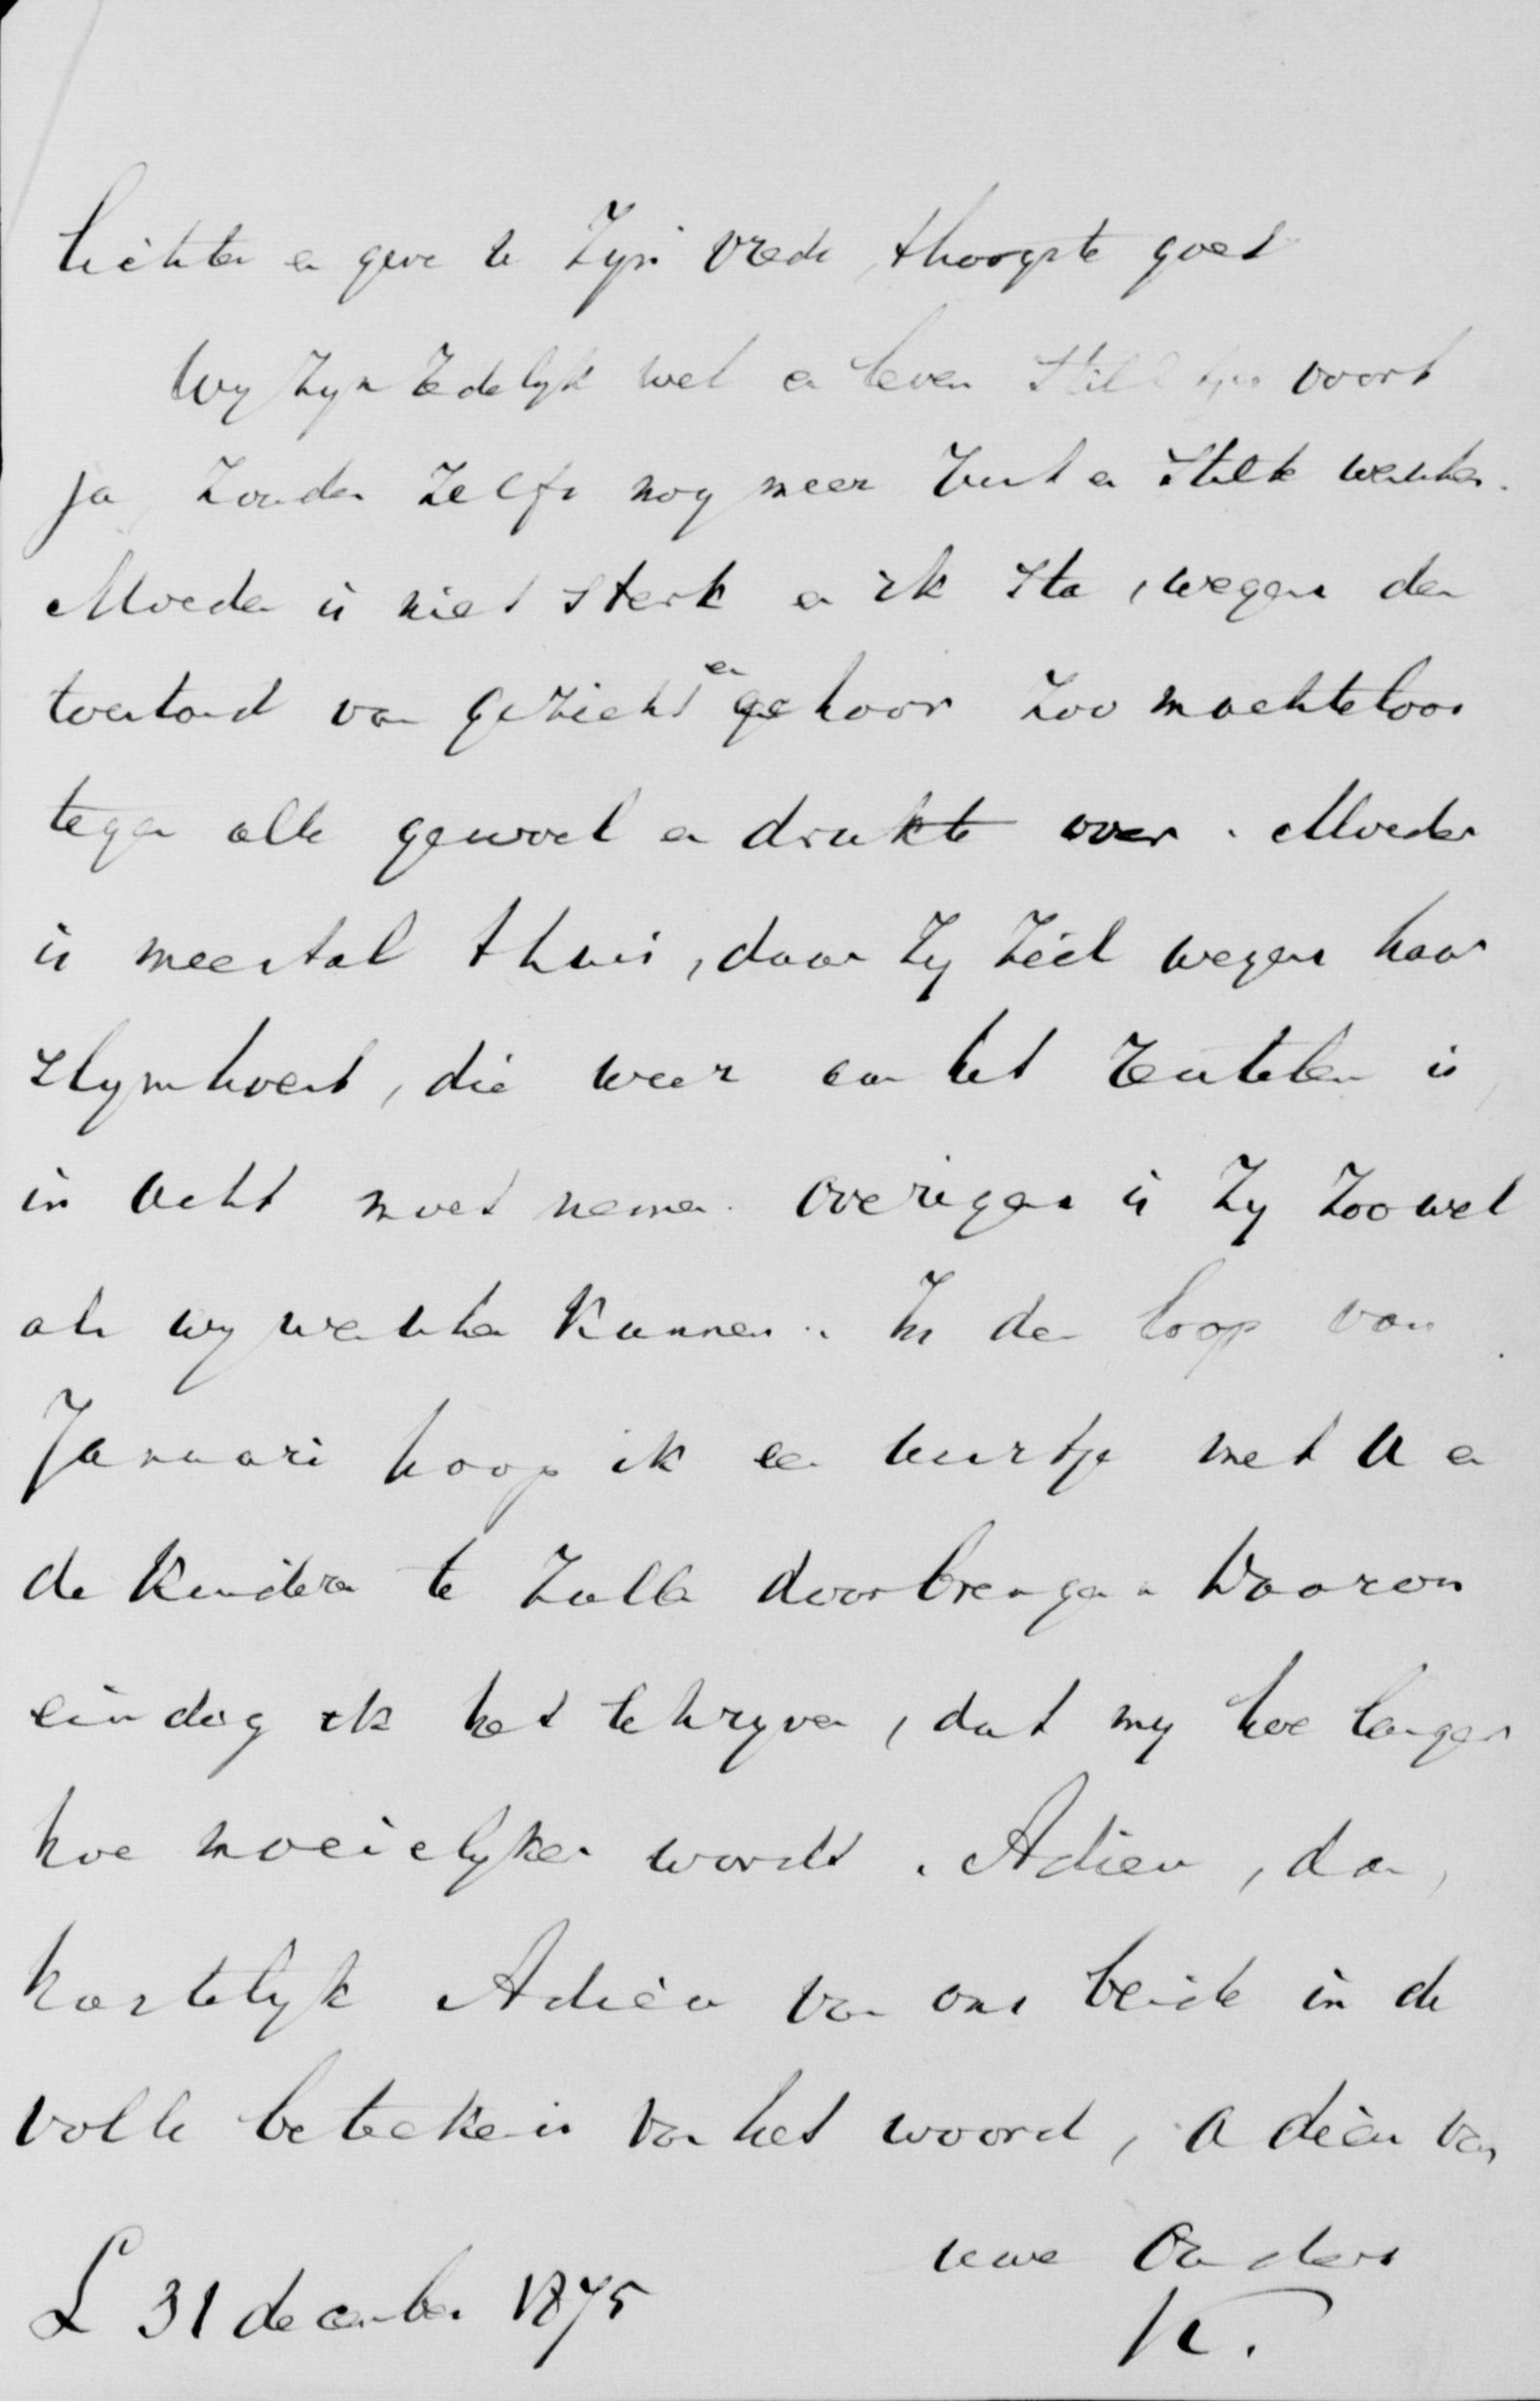 lichten en geve U Zyn vrede, 't hoogste goed
Wy zyn redelyk wel en leven stilletjes voort
ja zouden zelfs nog meer rust en stilte wenschen.
Moeder is niet sterk en ik sta, wegens den
toestand van gezicht en gehoor zoo machteloos
tegen alle gewoel en drukte over. Moeder
is meestal thuis, daar zy zich wegens haar
slymhoest, die weer aan het is,
in acht moet nemen. overigens is zy zoo wel
als wy wenschen kunnen. In den loop van
Januari hoop ik een uurtje met U en
de kinderen te zullen doorbrengen. Daarom
eindig ik het schryven, dat my hoe langer
hoe moeielyker wordt. Adieu, dan,
hartelyk Adieu van ons beide in de
volle beteekenis van het woord, a dieu van
uwe Ouders
K.
L 31 december 1875